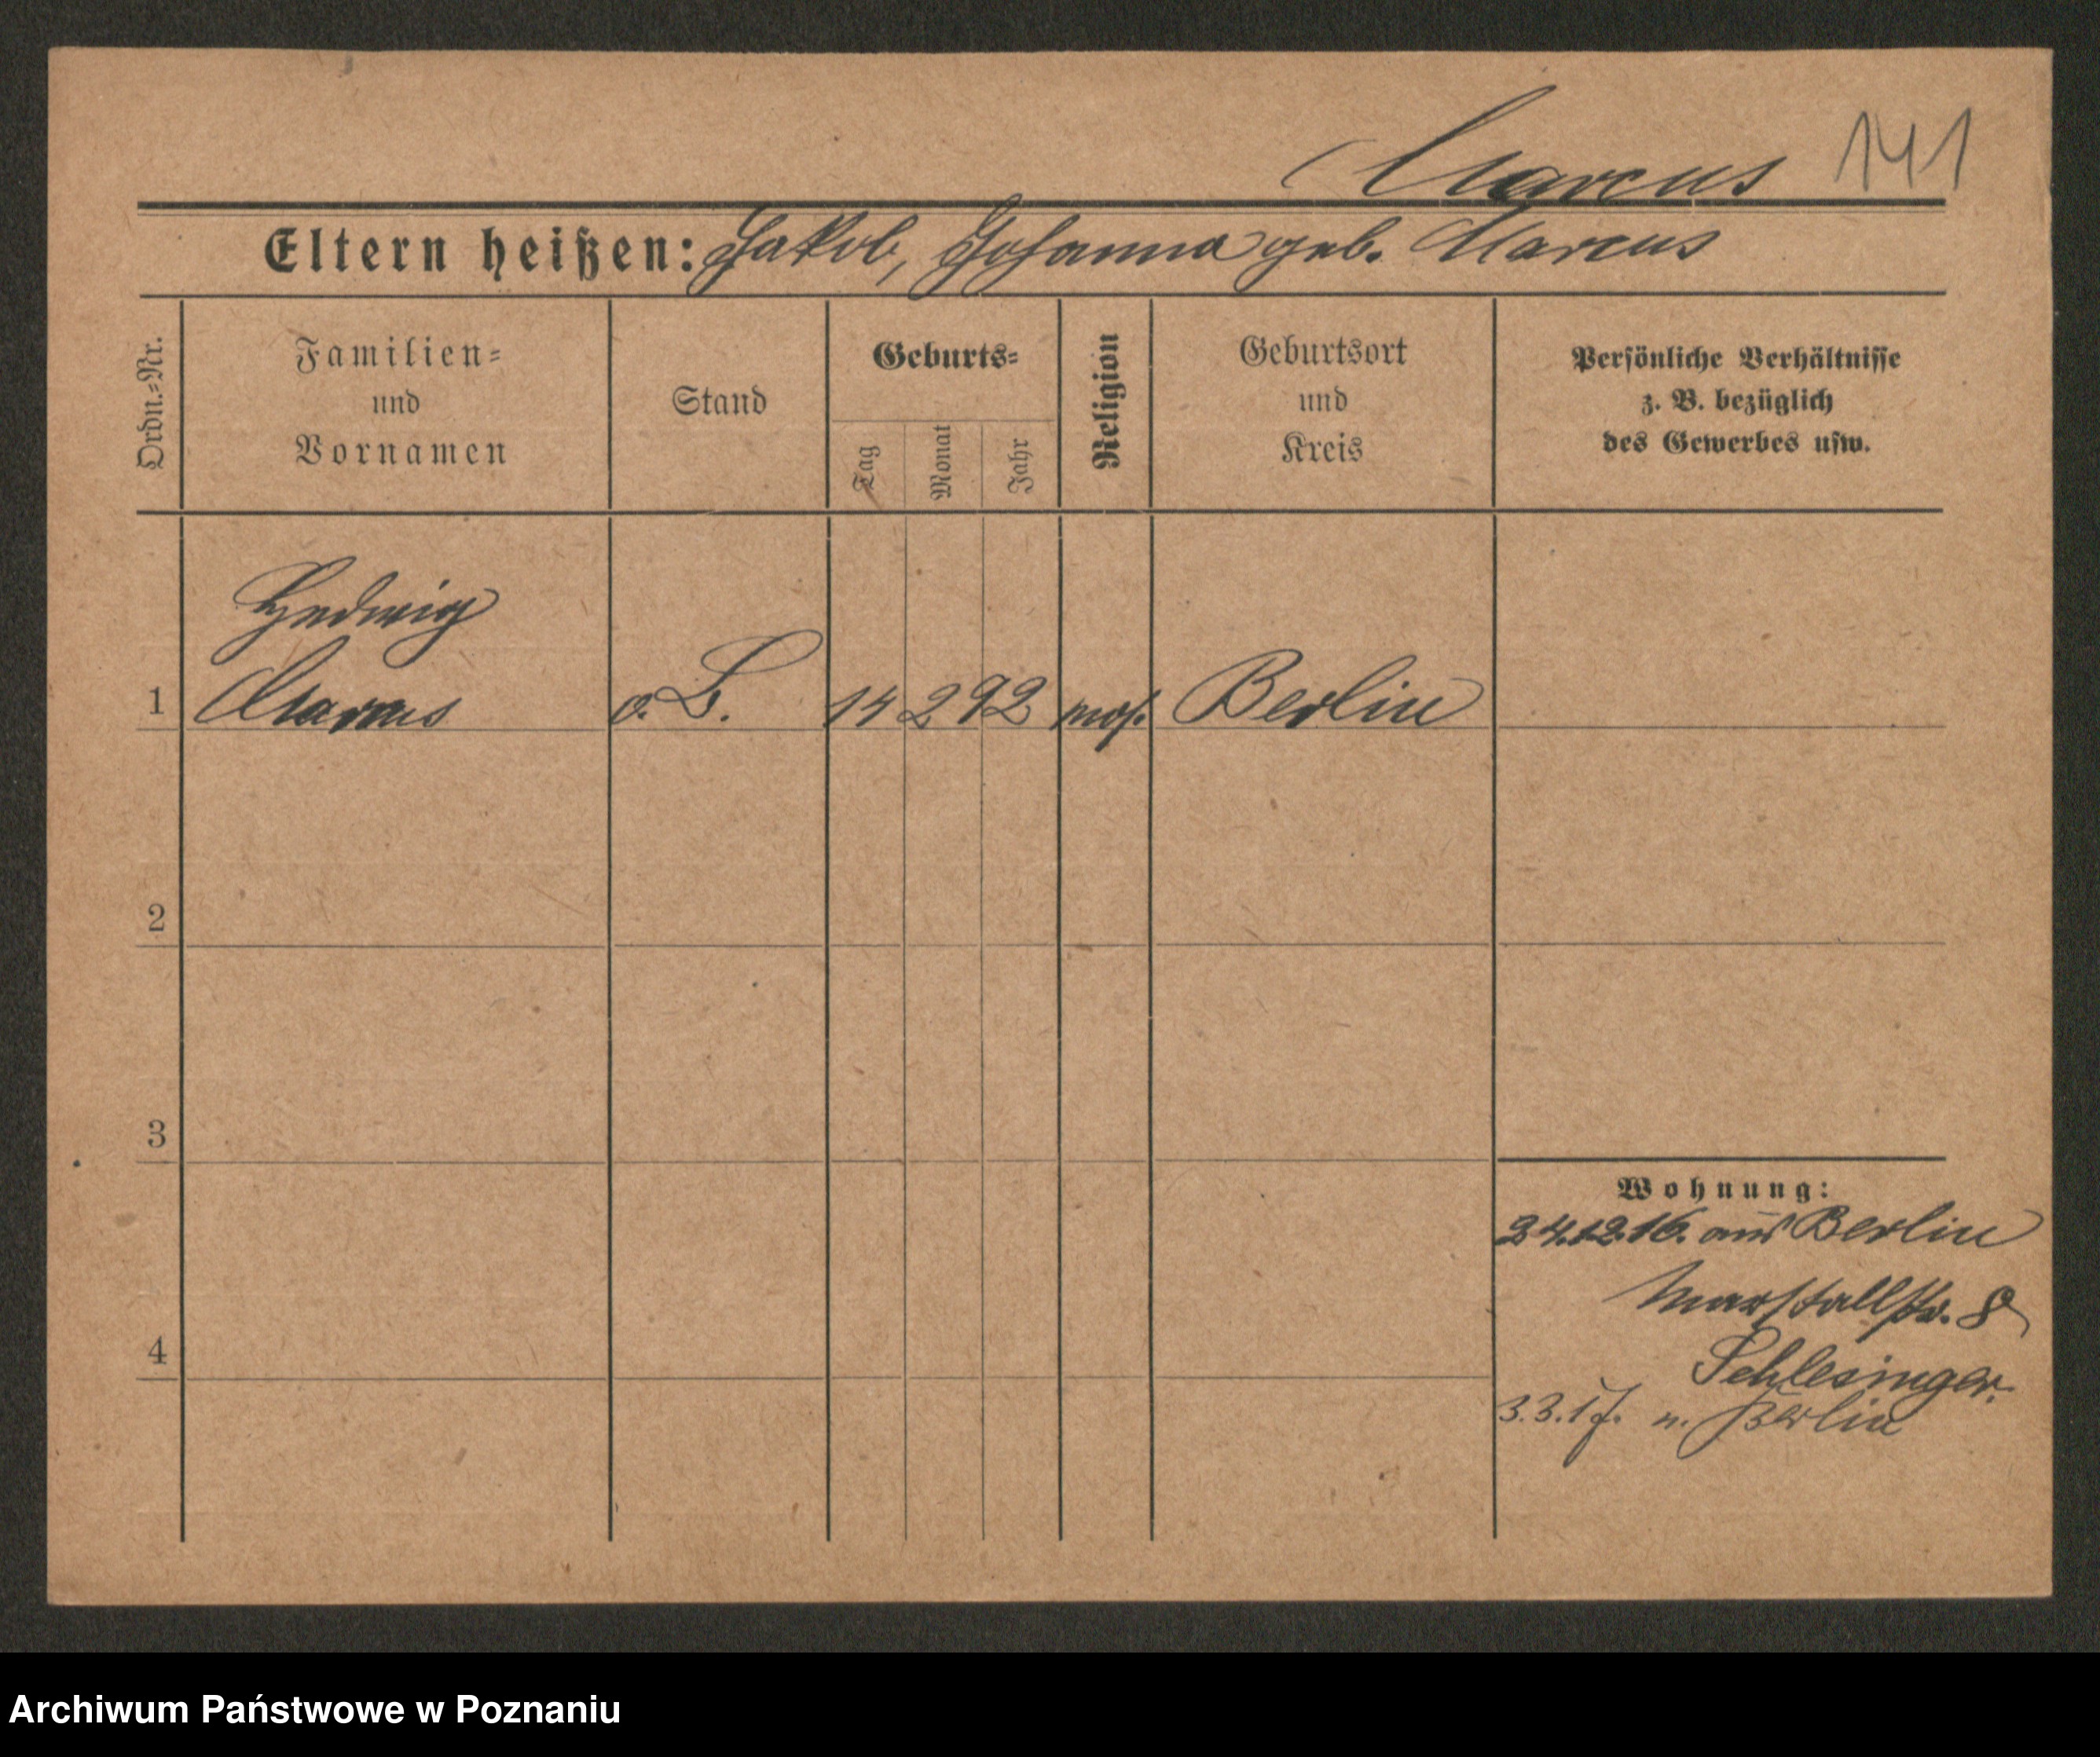 Marcus 141
Eltern heißen: Jakob, Johanna geb. Marcus
Ordn.-Nr.
Familien-
und
Vornamen
Stand
Geburts-
Tag
Monat
Jahr
Religion
Geburtsort
und
Kreis
Persönliche Verhältnisse
z. B. bezüglich
des Gewerbes usw.
Hedwig
1 Marcus o. B. 14 2 92 mos. Berlin
2
3
4
Wohnung:
24.12.16. aus Berlin
Marstallstr. 8
Schlesinger.
3.3.17. n. Berlin
Archiwum Państwowe w Poznaniu